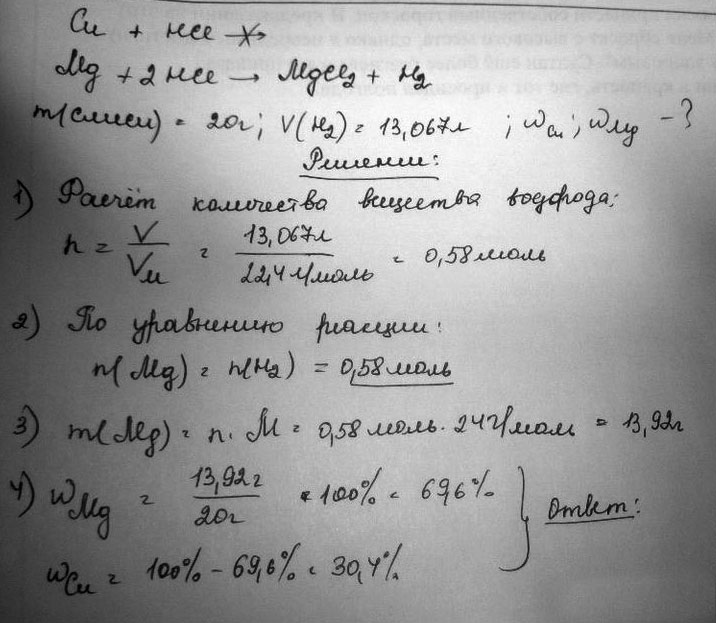 Cu + HCl ↛
Mg + 2HCl → MgCl2 + H2
m(смеси) = 20г; V(H2) = 13,067л ; ωCu; ωMg - ?
Решение:
1) Расчёт количества вещества водорода:
n = V/Vм = 13,067л/22,4 л/моль = 0,58 моль
2) По уравнению реакции:
n(Mg) = n(H2) = 0,58 моль
3) m(Mg) = n · M = 0,58 моль · 24 г/моль = 13,92г
4) ωMg = 13,92г/20г · 100% = 69,6%
ωCu = 100% - 69,6% = 30,4%
Ответ: